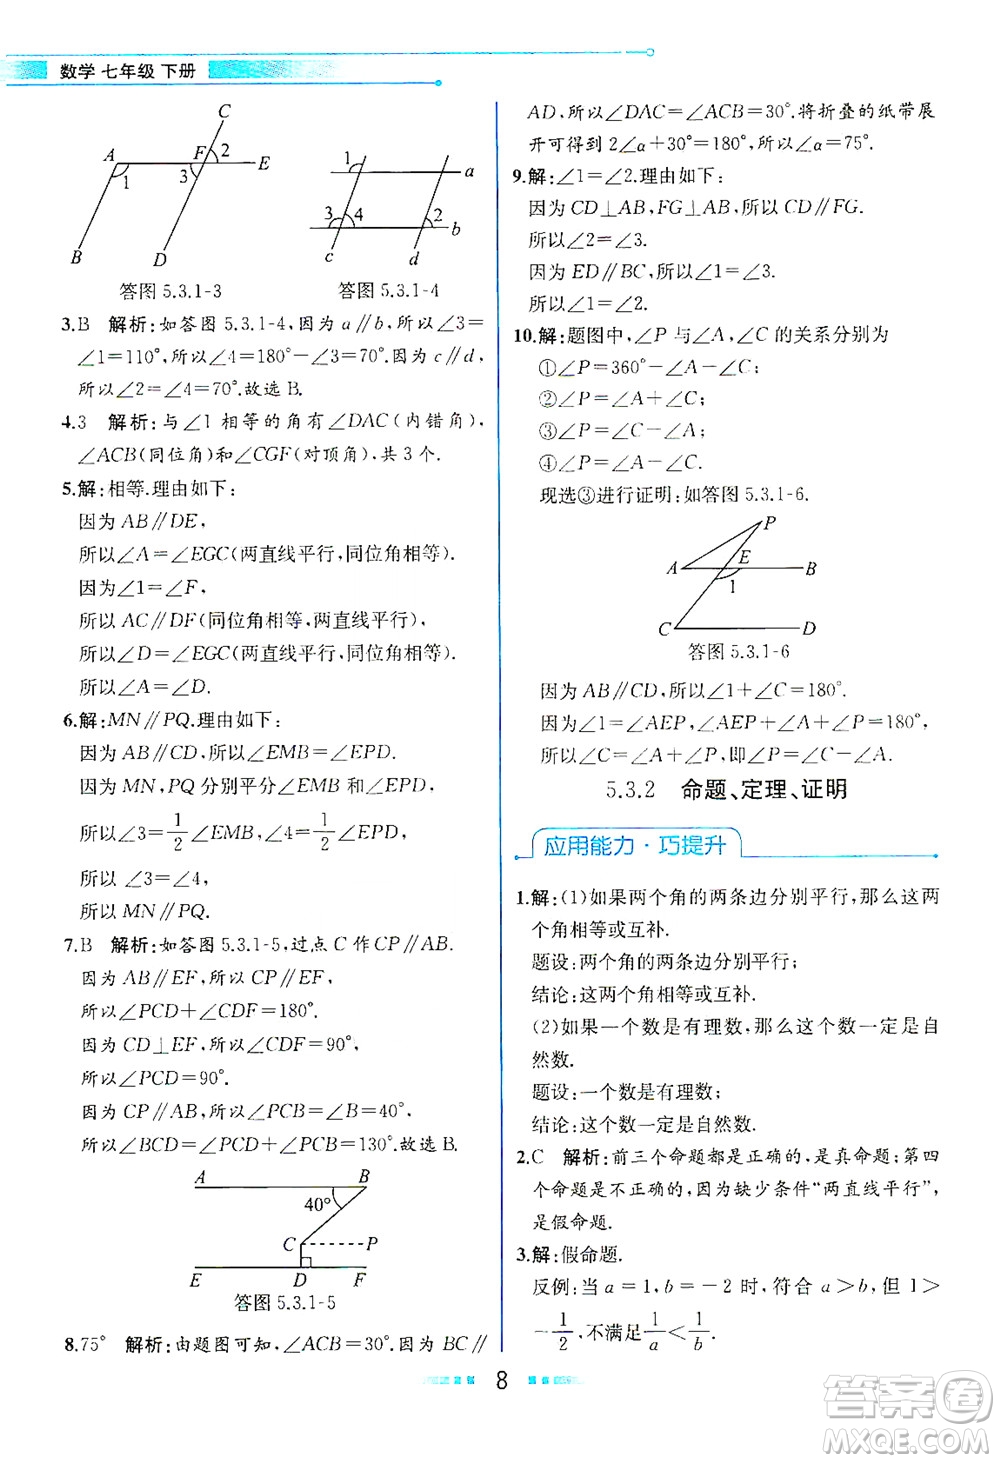 数学 七年级 下册
C
A
F
2
E
1
3
B
D
答图 5.3.1-3
1
a
3
4
2
b
c
d
答图 5.3.1-4
3.B 解析:如答图 5.3.1-4,因为 a∥b,所以∠3=
∠1=110°,所以∠4=180°-∠3=70°.因为 c∥d,
所以∠2=∠4=70°.故选 B.
4.3 解析:与∠1 相等的角有∠DAC(内错角),
∠ACB(同位角)和∠CGF(对顶角),共 3 个.
5.解:相等.理由如下:
因为 AB∥DE,
所以∠A=∠EGC(两直线平行,同位角相等).
因为∠1=∠F,
所以 AC∥DF(同位角相等,两直线平行).
所以∠D=∠EGC(两直线平行,同位角相等).
所以∠A=∠D.
6.解:MN∥PQ.理由如下:
因为 AB∥CD,所以∠EMB=∠EPD.
因为 MN,PQ 分别平分∠EMB 和∠EPD,
所以∠3=1/2∠EMB,∠4=1/2∠EPD,
所以∠3=∠4.
所以 MN∥PQ.
7.B 解析:如答图 5.3.1-5,过点 C 作 CP∥AB.
因为 AB∥EF,所以 CP∥EF,
所以∠PCD+∠CDF=180°.
因为 CD⊥EF,所以∠CDF=90°,
所以∠PCD=90°.
因为 CP∥AB,所以∠PCB=∠B=40°,
所以∠BCD=∠PCD+∠PCB=130°.故选 B.
A
B
40°
C
P
E
D
F
答图 5.3.1-5
8.75° 解析:由题图可知,∠ACB=30°.因为 BC∥
AD,所以∠DAC=∠ACB=30°.将折叠的纸带展
开可得到 2∠α+30°=180°,所以∠α=75°.
9.解:∠1=∠2.理由如下:
因为 CD⊥AB,FG⊥AB,所以 CD∥FG.
所以∠2=∠3.
因为 ED∥BC,所以∠1=∠3.
所以∠1=∠2.
10.解:题图中,∠P 与∠A,∠C 的关系分别为
①∠P=360°-∠A-∠C;
②∠P=∠A+∠C;
③∠P=∠C-∠A;
④∠P=∠A-∠C.
现选③进行证明:如答图 5.3.1-6.
P
E
A
B
1
C
D
答图 5.3.1-6
因为 AB∥CD,所以∠1+∠C=180°.
因为∠1=∠AEP,∠AEP+∠A+∠P=180°,
所以∠C=∠A+∠P,即∠P=∠C-∠A.
5.3.2 命题、定理、证明
应用能力·巧提升
1.解:(1)如果两个角的两条边分别平行,那么这两
个角相等或互补.
题设:两个角的两条边分别平行;
结论:这两个角相等或互补.
(2)如果一个数是有理数,那么这个数一定是自
然数.
题设:一个数是有理数;
结论:这个数一定是自然数.
2.C 解析:前三个命题都是正确的,是真命题;第四
个命题是不正确的,因为缺少条件“两直线平行”,
是假命题.
3.解:假命题.
反例:当 a=1,b=-2 时,符合 a>b,但 1>
-1/2,不满足 1/a<1/b.
8
答案卷
MXQE.COM